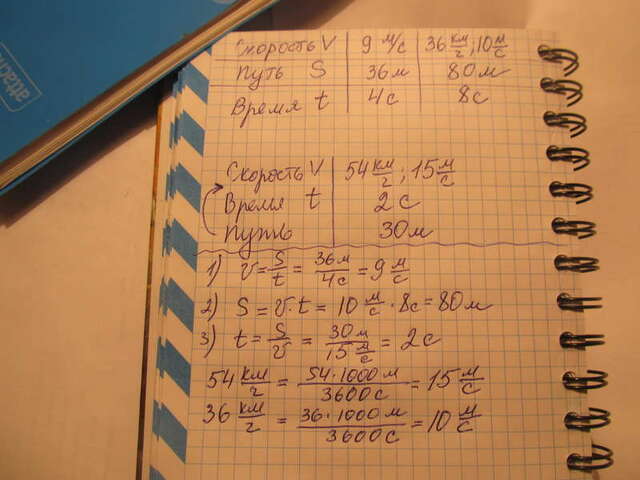 attach
Скорость V 9 м/с 36 км/ч; 10 м/с
Путь S 36м 80м
Время t 4с 8с
Скорость V 54 км/ч; 15 м/с
Время t 2с
Путь 30м
1) v = S/t = 36м/4с = 9 м/с
2) S = v·t = 10 м/с · 8с = 80м
3) t = S/v = 30м/15 м/с = 2с
54 км/ч = 54·1000м/3600с = 15 м/с
36 км/ч = 36·1000м/3600с = 10 м/с